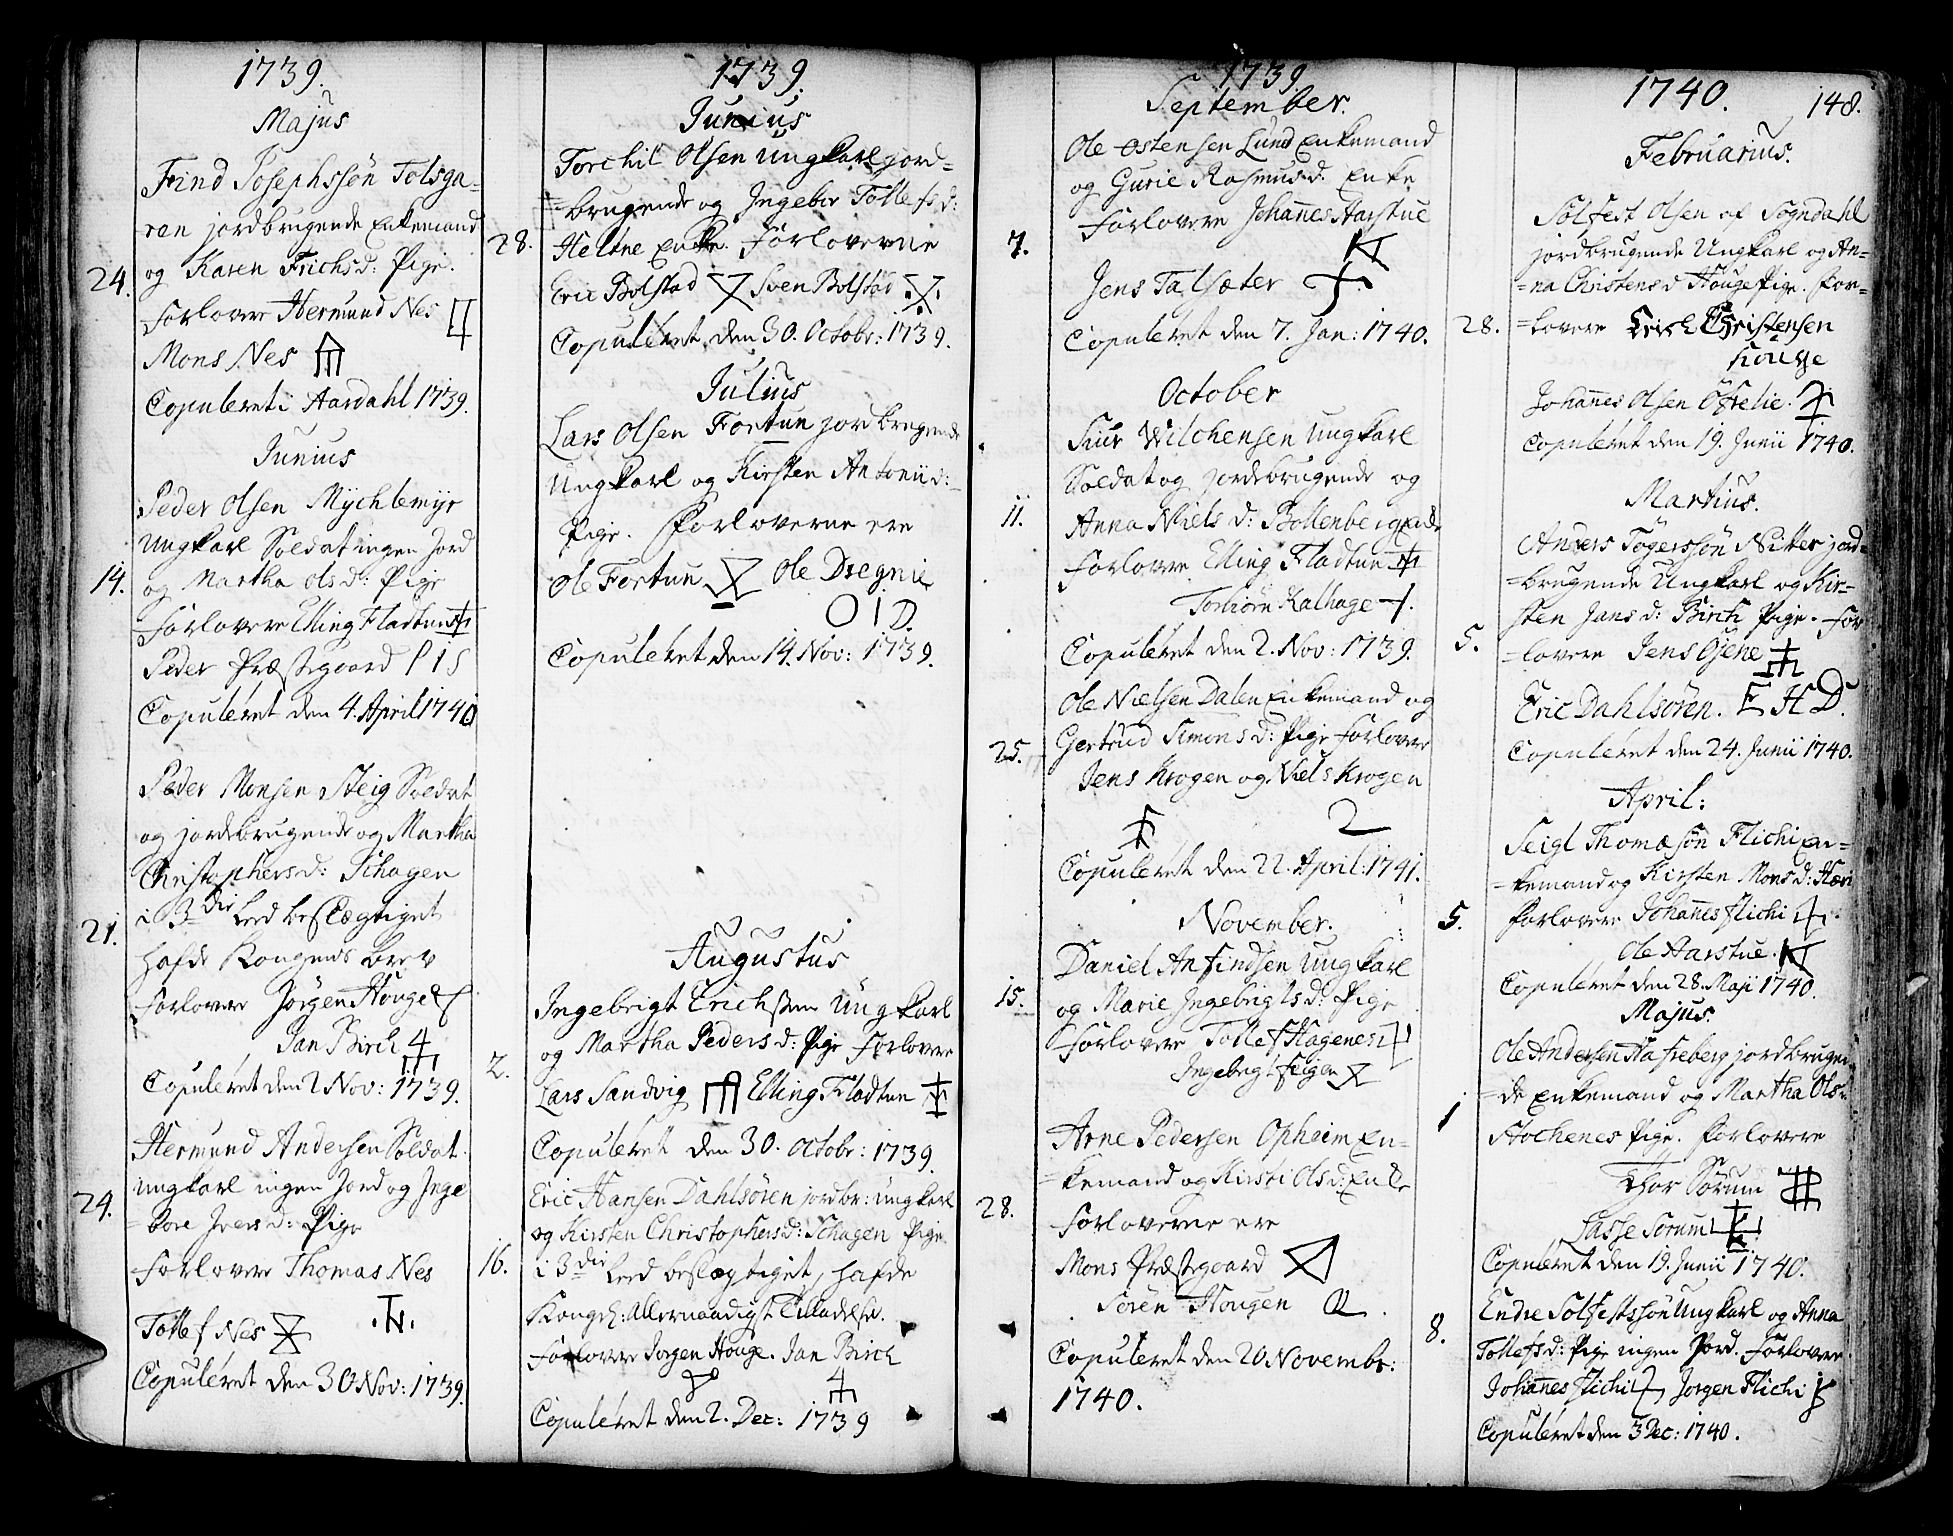 1739.
Majus
Find Josephssön Tolsga-
ren jordbrugende Enkemand
24. og Karen Erichsd: Pige.
Forlovere Hermund Nes
Mons Nes
Copuleret i Aardahl 1739.
Junius
Peder Olsen Mychlemyr
Ungkarl Soldat ingen Jord
14. og Martha Olsd: Pige
Forlovere Elling Fladtun
Peder Præstegaard P I S
Copuleret den 4. April 1740
Peder Monsen Steig Soldat
og jordbrugende og Martha
Christophersd: Schagen
i 3die Leed beslægtiget
21. hafde Kongens brev
Forlovere Jörgen Houge
Jan Birch
Copuleret den 2 Nov: 1739.
Hermund Andersen Soldat
24. ungkarl ingen Jord og Inge
bore Iversd: Pige
Forlovere Thomas Nes
Tollef Nes
Copuleret den 30 Nov: 1739.
1739.
Junius
Torchil Olsen Ungkarl jord-
=brugende og Ingebor Tollefsd:
28. Heltne Enke. Forloverne
Eric Bolstad Sven Bolstad
Copuleret den 30. Octobr: 1739.
Julius
Lars Olsen Fortun jordbrugende
Ungkarl og Kirsten Antoniid:
Pige. Forloverne ere
Ole Fortun Ole Dregnie
O I D.
Copuleret den 14. Nov: 1739.
Augustus
Ingebrigt Erichssen Ungkarl
og Martha Pedersd: Pige Forlovere
2. Lars Sandvig Elling Fladtun
Copuleret den 30. Octobr: 1739.
Eric Hansen Dahlsören jordbr: Ungkarl
og Kirsten Christophersd: Schagen Pige
16. i 3die Leed beslægtiget, hafde
Kongel: Allernaadigst Tilladelse.
Forlovere Jorgen Houge. Jan Birch
Copuleret den 2. Dec: 1739
1739
September.
Ole Ostensen Lund Enkemand
og Gurie Rasmusd. Enke
7. Forlovere Johannes Aarstue
Jens Talsæter
Copuleret den 7. Jan: 1740.
October
Siur Wilchensen Ungkarl
Soldat og jordebrugende og
11. Anna Nielsd: Bollenberg Enke
Forlovere Elling Fladtun
Torbiörn Kalhage
Copuleret den 2. Nov: 1739.
Ole Nielsen Dalen Enkemand og
25. Gertrud Simonsd: Pige Forlovere
Jens Krogen og Niels Krogen
Copuleret den 22. April: 1741.
November.
Daniel Anfindsen Ungkarl
15. og Marie Ingebrigtsd: Pige
Forlovere Tollef Hagenes
Ingebrigt Feigen
Arne Pedersen Opheim En-
=kemand og Kirsti Olsd: Enke
28. Forloverne ere
Mons Præstegaard
Sören Hougen
Copuleret den 20 Novembr:
1740.
1740.
148.
Februarius.
Solfest Olsen af Sogndahl
jordbrugende Ungkarl og An-
=na Christensd Houge Pige. For-
28. =lovere Erich Christensen
Houge
Johannes Olsen Öfrelie.
Copuleret den 19. Junii 1740.
Martius.
Anders Tögerssön Nitter jord-
=brugende Ungkarl og Kir-
sten Jansd: Birch Pige. For
5. =lovere Jens Öjene
Eric Dahlsören. E H D.
Copuleret den 24. Junii 1740.
April:
Seigl Thomæsön Flichi En-
=kemand og Kirsten Monsd: Hæri
5. Forlovere Johannes Flichi
Ole Aarstue.
Copuleret den 28. Maji 1740.
Majus.
Ole Andersen Hafreberg jordbrugen
=de Enkemand og Martha Olsd:
1 Stochenes Pige. Forlovere
Thor Sorum
Lasse Sorum
Copuleret den 19. Junii 1740.
Endre Solfestssön Ungkarl og Anna
8. Tollefsd: Pige ingen Jord. Forlovere
Johannes Flichi Jorgen Flichi
Copuleret den 3 Dec: 1740.